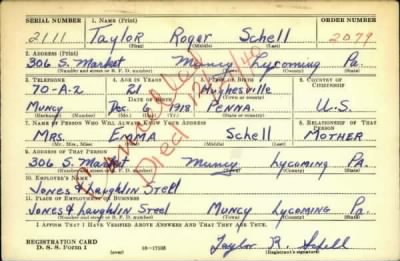 SERIAL NUMBER 1. NAME (Print) ORDER NUMBER
2111 Taylor Roger Schell 2079
(First) (Middle) (Last)
2. ADDRESS (Print)
306 S. Market Muncy Lycoming Pa.
(Number and street or R. F. D. number) (Town) (County) (State)
3. TELEPHONE 4. AGE IN YEARS 5. PLACE OF BIRTH 6. COUNTRY OF CITIZENSHIP
70-A-2 21 Hughesville
DATE OF BIRTH
Muncy Dec. 6, 1918 PENNA. U.S.
7. NAME OF PERSON WHO WILL ALWAYS KNOW YOUR ADDRESS 8. RELATIONSHIP OF THAT PERSON
MRS. EMMA Schell MOTHER
(Mr., Mrs., Miss) (First) (Middle) (Last)
9. ADDRESS OF THAT PERSON
306 S. Market Muncy Lycoming PA.
(Number and street or R. F. D. number) (Town) (County) (State)
10. EMPLOYER'S NAME
Jones & Laughlin Steel
11. PLACE OF EMPLOYMENT OR BUSINESS
Jones & Laughlin Steel Muncy Lycoming Pa.
(Number and street or R. F. D. number) (Town) (County) (State)
I AFFIRM THAT I HAVE VERIFIED ABOVE ANSWERS AND THAT THEY ARE TRUE.
REGISTRATION CARD
D. S. S. Form 1 (over) Taylor R. Schell
(Registrant's signature)
Cancelled
Died